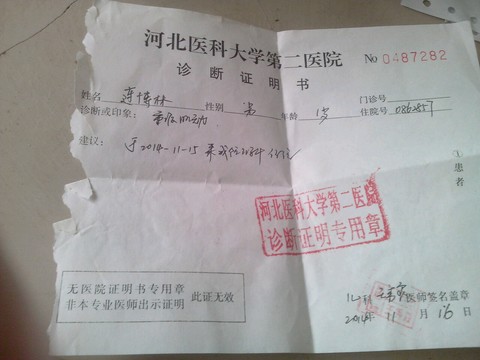 河北医科大学第二医院
No 0487282
诊断证明书
姓名 性别 男 年龄 1岁 门诊号
诊断或印象: 住院号 0862857
建议: 于2014-11-15来我院
①患者
河北医科大学第二医院
诊断证明专用章
无医院证明书专用章
非本专业医师出示证明 此证无效
医师签名盖章
2014年 11 月 16 日